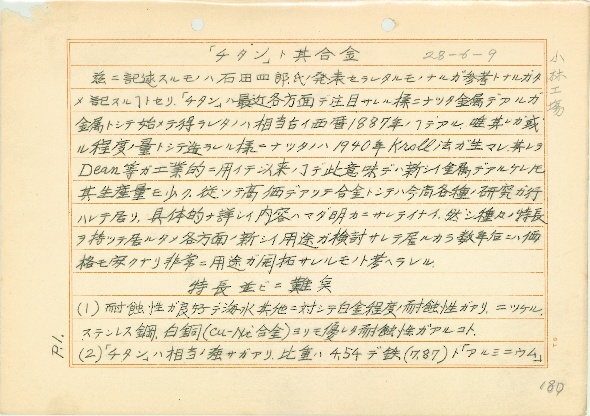 「チタン」ト其合金
28-6-9
小林工場
茲ニ記述スルモノハ石田四郎氏ノ発表セラレタルモノナルガ参考トナルガタ
メ記スルコトセリ.「チタン」ハ最近各方面デ注目サレル様ニナツタ金属デアルガ
金属トシテ始メテ得ラレタノハ相当古イ西暦1887年ノコデアル. 唯其レガ或
ル程度ノ量トシテ造ラレル様ニナツタノハ1940年Kroll法ガ生マレ其レヲ
Dean等ガ工業的ニ用イテ以来ノコデ此意味デハ新シイ金属デアルケレ圧
其生産量モ少ク.従ツテ高価デアツテ合金トシテハ今尚各種ノ研究ガ行
ハレテ居リ、具体的ナ詳シイ内容ハマダ明カニサレテイナイ. 然シ種々ノ特長
ヲ持ツテ居ルタメ各方面ノ新シイ用途ガ検討サレテ居ルカラ数年后ニハ価
格モ安クナリ非常ニ用途ガ開拓サレルモノト考ヘラレル.
特長並ビニ難点
(1) 耐蝕性ガ良好デ海水其他ニ対シテ白金程度ノ耐蝕性ガアリ. ニツケル.
ステンレス鋼. 白銅(Cu-Ni合金)ヨリモ優レタ耐蝕性ガアルコト.
(2)「チタン」ハ相当ノ強サガアリ. 比重ハ 4.54 デ鉄(7.87)ト「アルミニウム」
P.1.
189